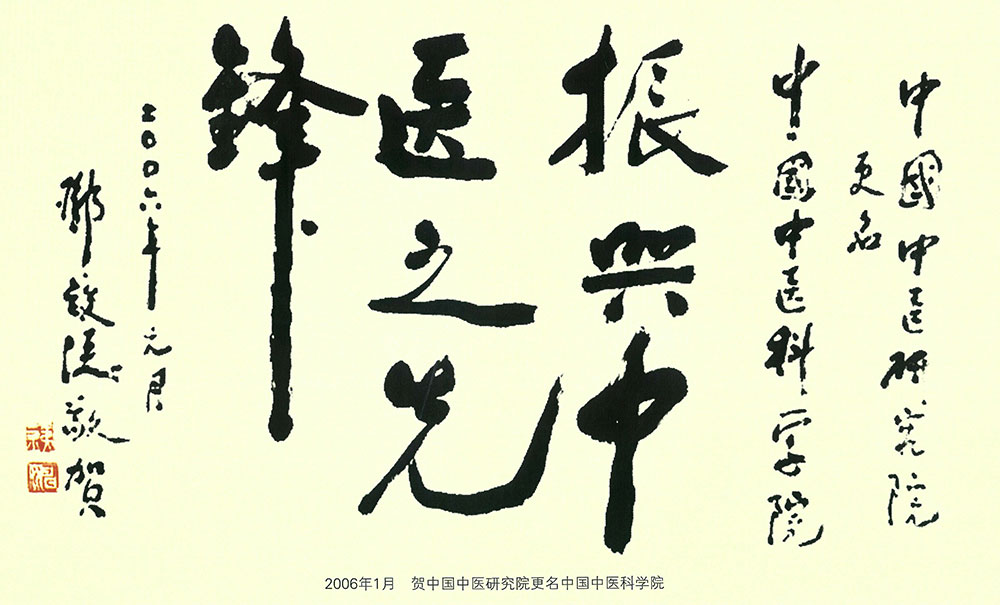 中國中医研究院
更名
中國中医科学院
振興中
医之先
鋒
二〇〇六年元月
鄧鐵濤敬賀
2006年1月 贺中国中医研究院更名中国中医科学院